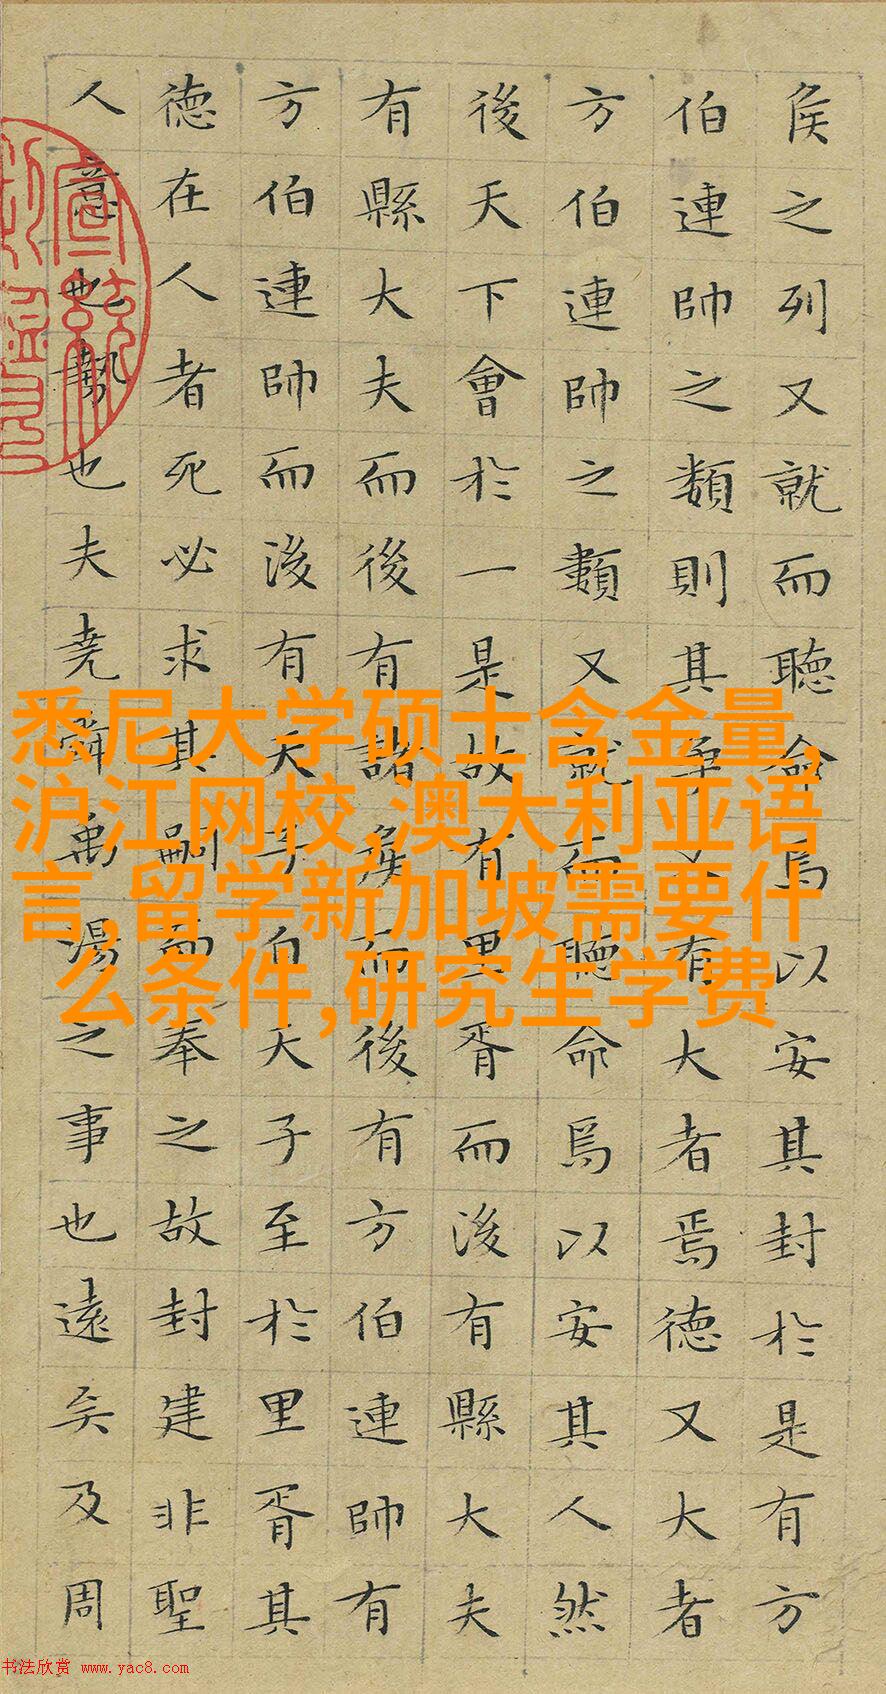 侯之列又就而聽命焉以安其封於是有方
伯連帥之類則其爭又有大者焉德又大者
方伯連帥之類又就而聽命焉以安其人然
後天下會於一是故有里胥而後有縣大夫
有縣大夫而後有諸侯而後有方伯連帥有
方伯連帥而後有天子自天子至於里胥其
德在人者死必求其嗣而奉之故封建非聖
人意也勢也夫堯舜禹湯之事也遠矣及周
悉尼大学硕士含金量,
沪江网校,澳大利亚语
言,留学新加坡需要什
么条件,研究生学费
书法欣赏 www.yac8.com